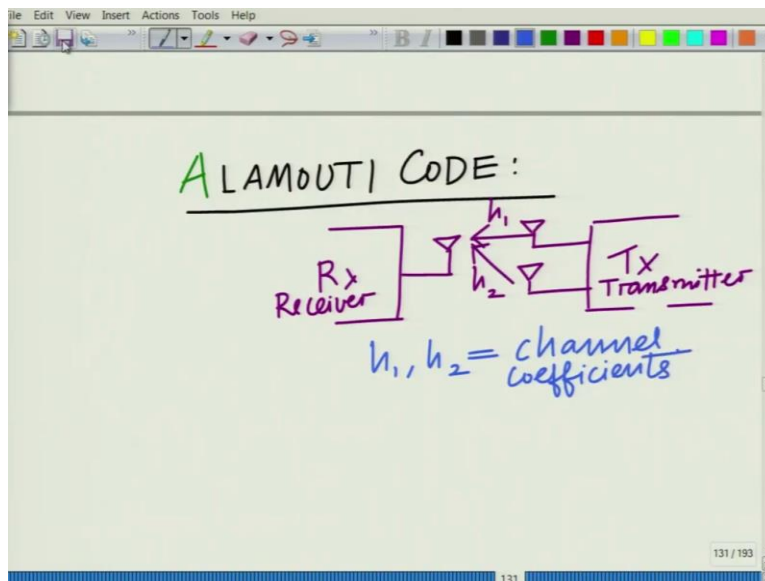 ile Edit View Insert Actions Tools Help
B I
ALAMOUTI CODE:
h₁
Rx
Receiver
h₂
Tx
Transmitter
h₁, h₂ = channel
coefficients
131 / 193
131